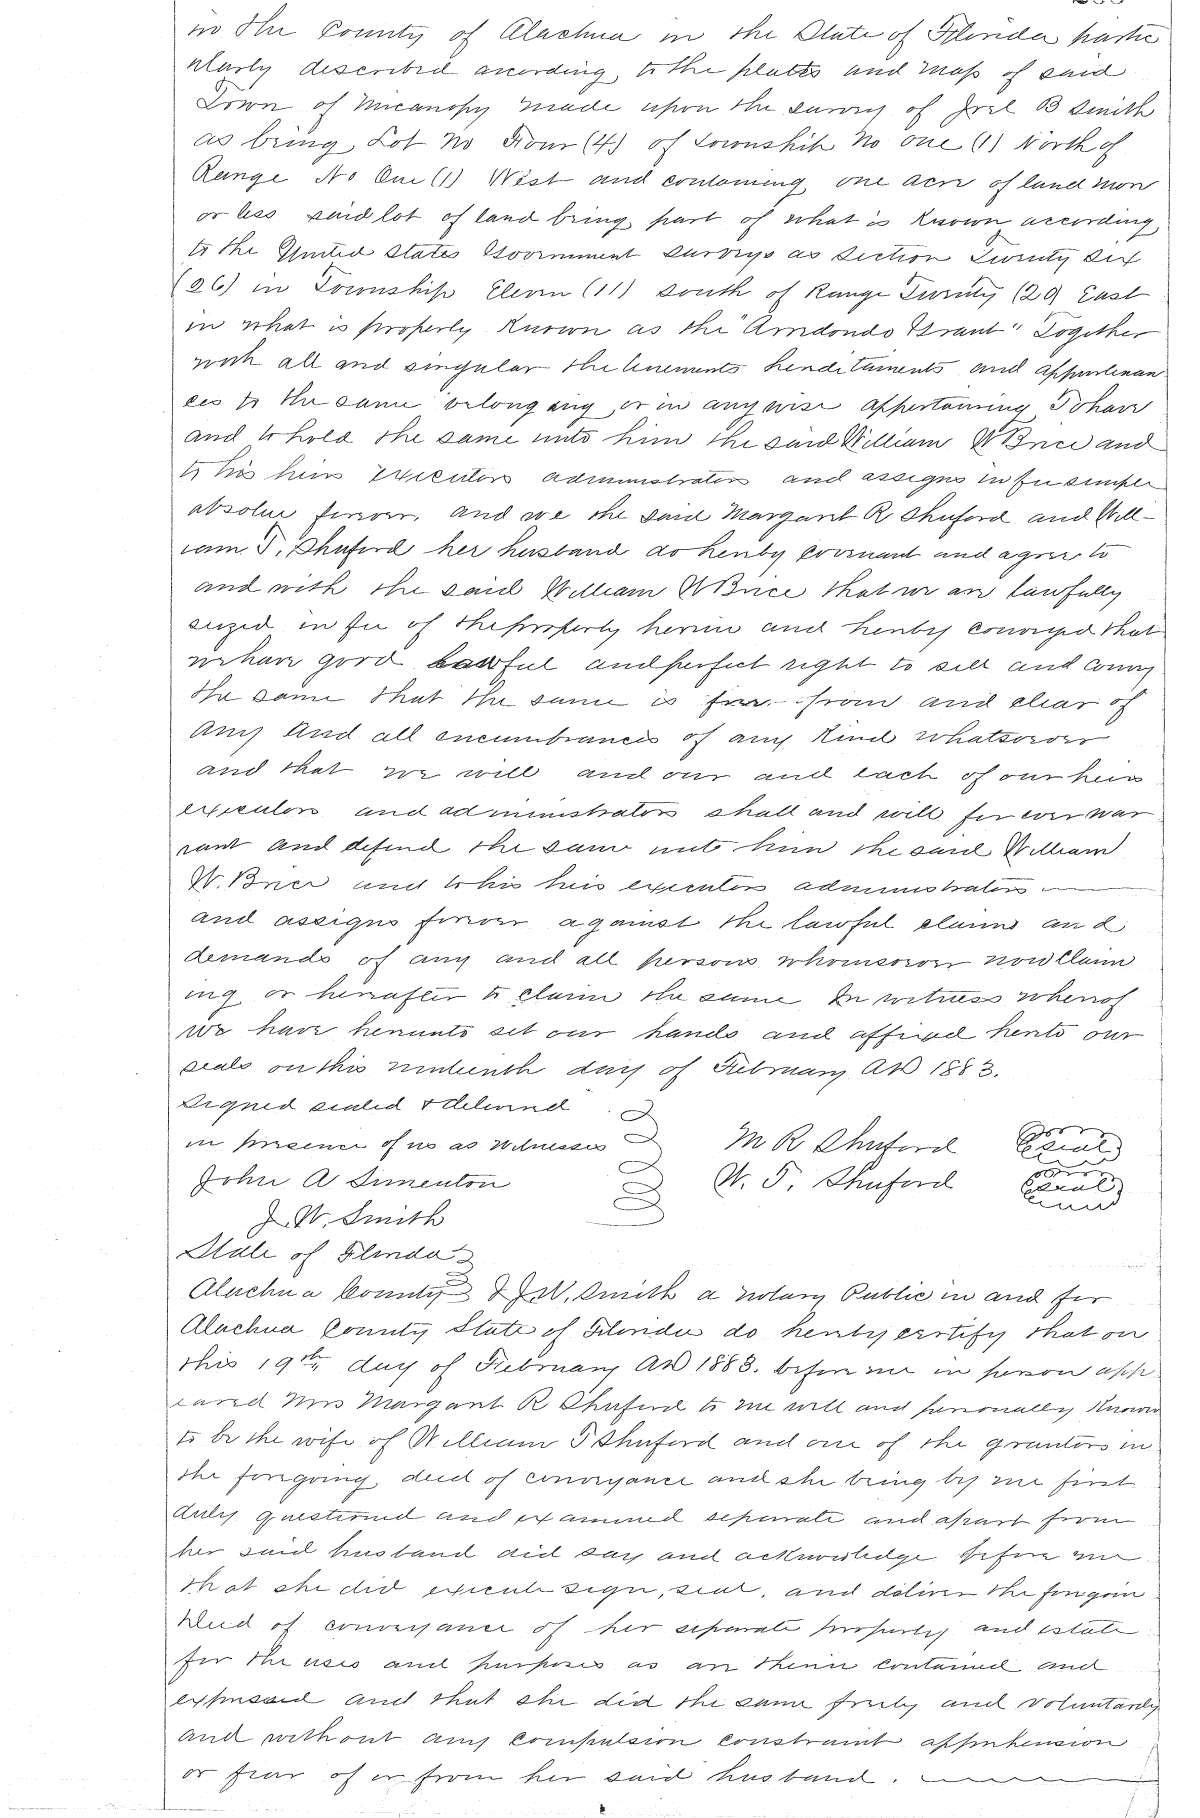 in the County of Alachua in the State of Florida partic
ularly described according to the platts and map of said
Town of Micanopy made upon the survey of B Smith
as being Lot No Four (4) of Township No one (1) North of
Range No One (1) West and containing one acre of land more
or less said lot of land being part of what is known according
to the United States Government surveys as Section Twenty Six
(26) in Township Eleven (11) South of Range Twenty (20) East
in what is properly known as the "Arredondo Grant" Together
with all and singular the tenements hereditaments and appurtenan
ces to the same belonging or in any wise appertaining To have
and to hold the same unto him the said William W Brice and
to his heirs executors administrators and assigns in fee simple
absolue forever. and we the said Margaret R Shuford and Will-
iam T. Shuford her husband do hereby covenant and agree to
and with the said William W Brice that we are lawfully
seized in fee of the property herein and hereby conveyed that
we have good lawful and perfect right to sell and convey
the same that the same is free from and clear of
any and all encumbrances of any kind whatsoever
and that we will and our and each of our heirs
executors and administrators shall and will for ever war
rant and defend the same unto him the said William
W. Brice and to his heirs executors administrators
and assigns forever against the lawful claims and
demands of any and all persons whomsoever now claim
ing or hereafter to claim the same In witness whereof
we have hereunto set our hands and affixed hereto our
seals on this nineteenth day of February AD 1883.
Signed sealed & delivered
in presence of us as witnesses M R Shuford Seal
John A Simenton W. T. Shuford Seal
J. W. Smith
State of Florida
Alachua County I J. W. Smith a Notary Public in and for
Alachua County State of Florida do hereby certify that on
this 19th day of February AD 1883. before me in person app
eared Mrs Margaret R Shuford to me well and personally known
to be the wife of William T Shuford and one of the grantors in
the foregoing deed of conveyance and she being by me first
duly questioned and examined separate and apart from
her said husband did say and acknowledge before me
that she did execute sign, seal, and deliver the foregoin
Deed of conveyance of her separate property and estate
for the uses and purposes as are therein contained and
expressed and that she did the same freely and voluntarily
and without any compulsion constraint apprehension
or fear of or from her said husband.